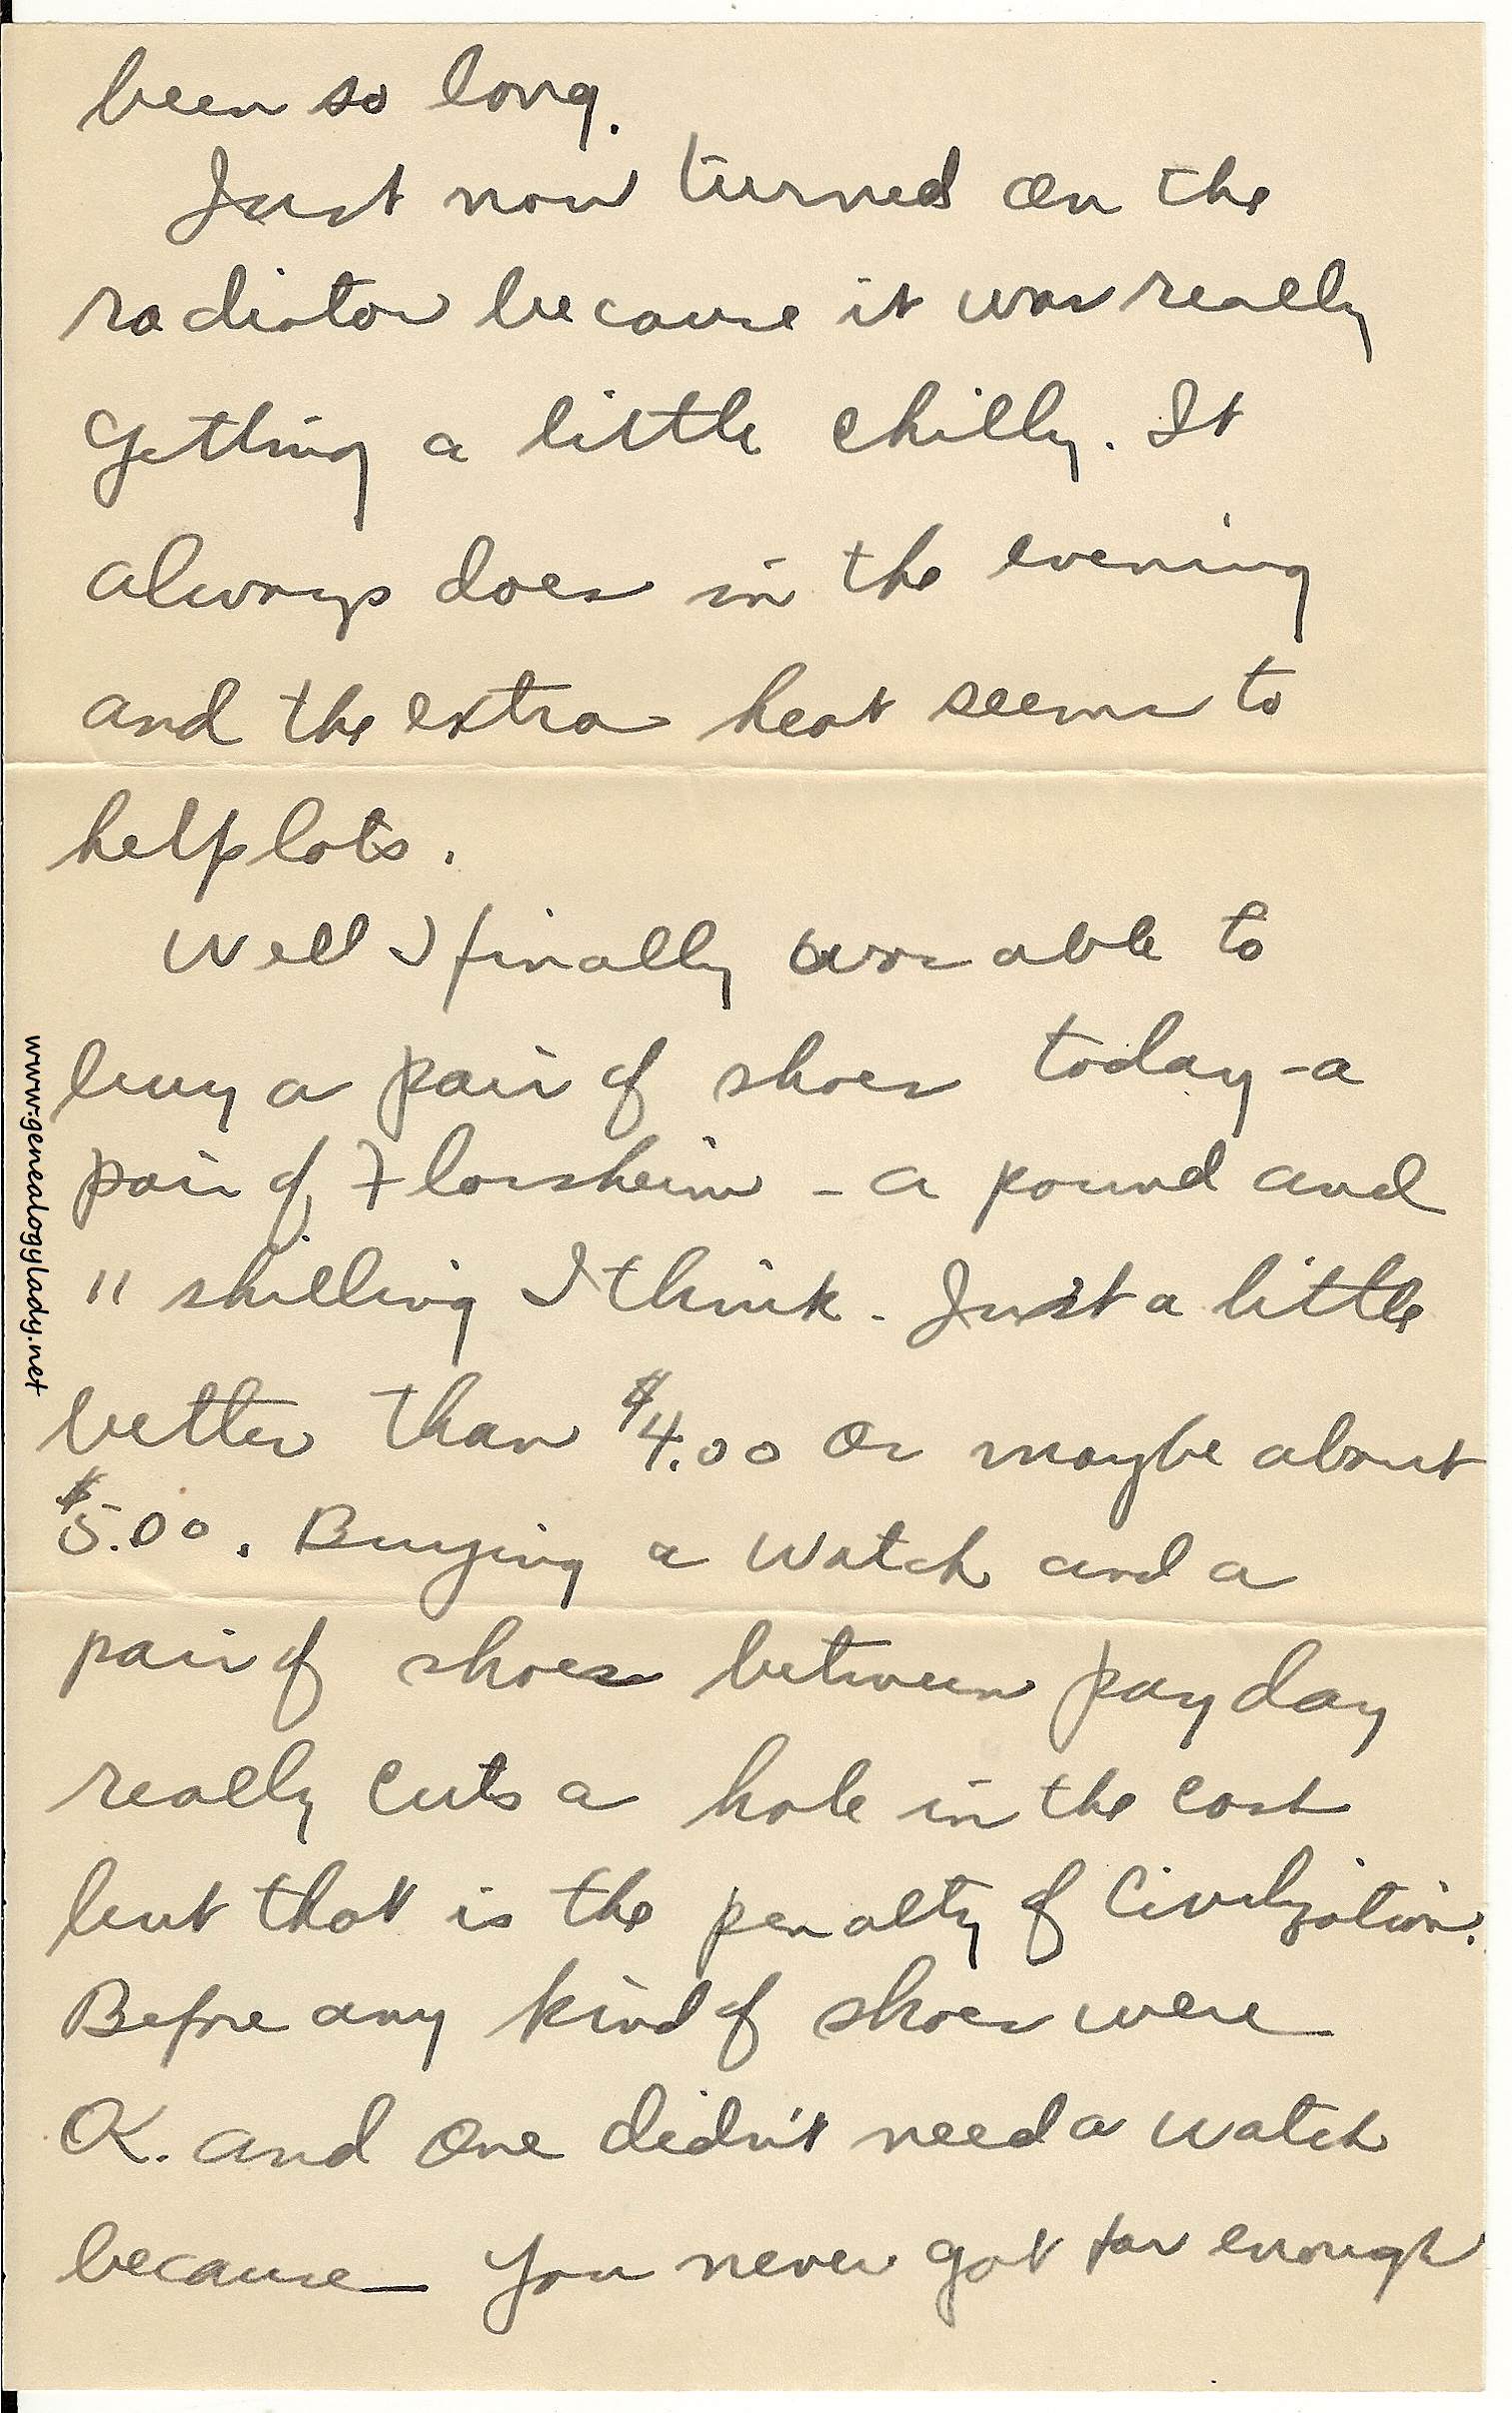 been so long.
Just now turned on the
radiator because it was really
getting a little chilly. It
always does in the evening
and the extra heat seems to
help lots.
Well I finally was able to
buy a pair of shoes today - a
pair of Florsheim - a pound and
11 shilling I think. Just a little
better than $4.00 or maybe about
$5.00. Buying a watch and a
pair of shoes between pay day
really cuts a hole in the cost
but that is the penalty of civilization.
Before any kind of shoes were
OK. and one didn't need a watch
because you never got far enough
www.genealogylady.net